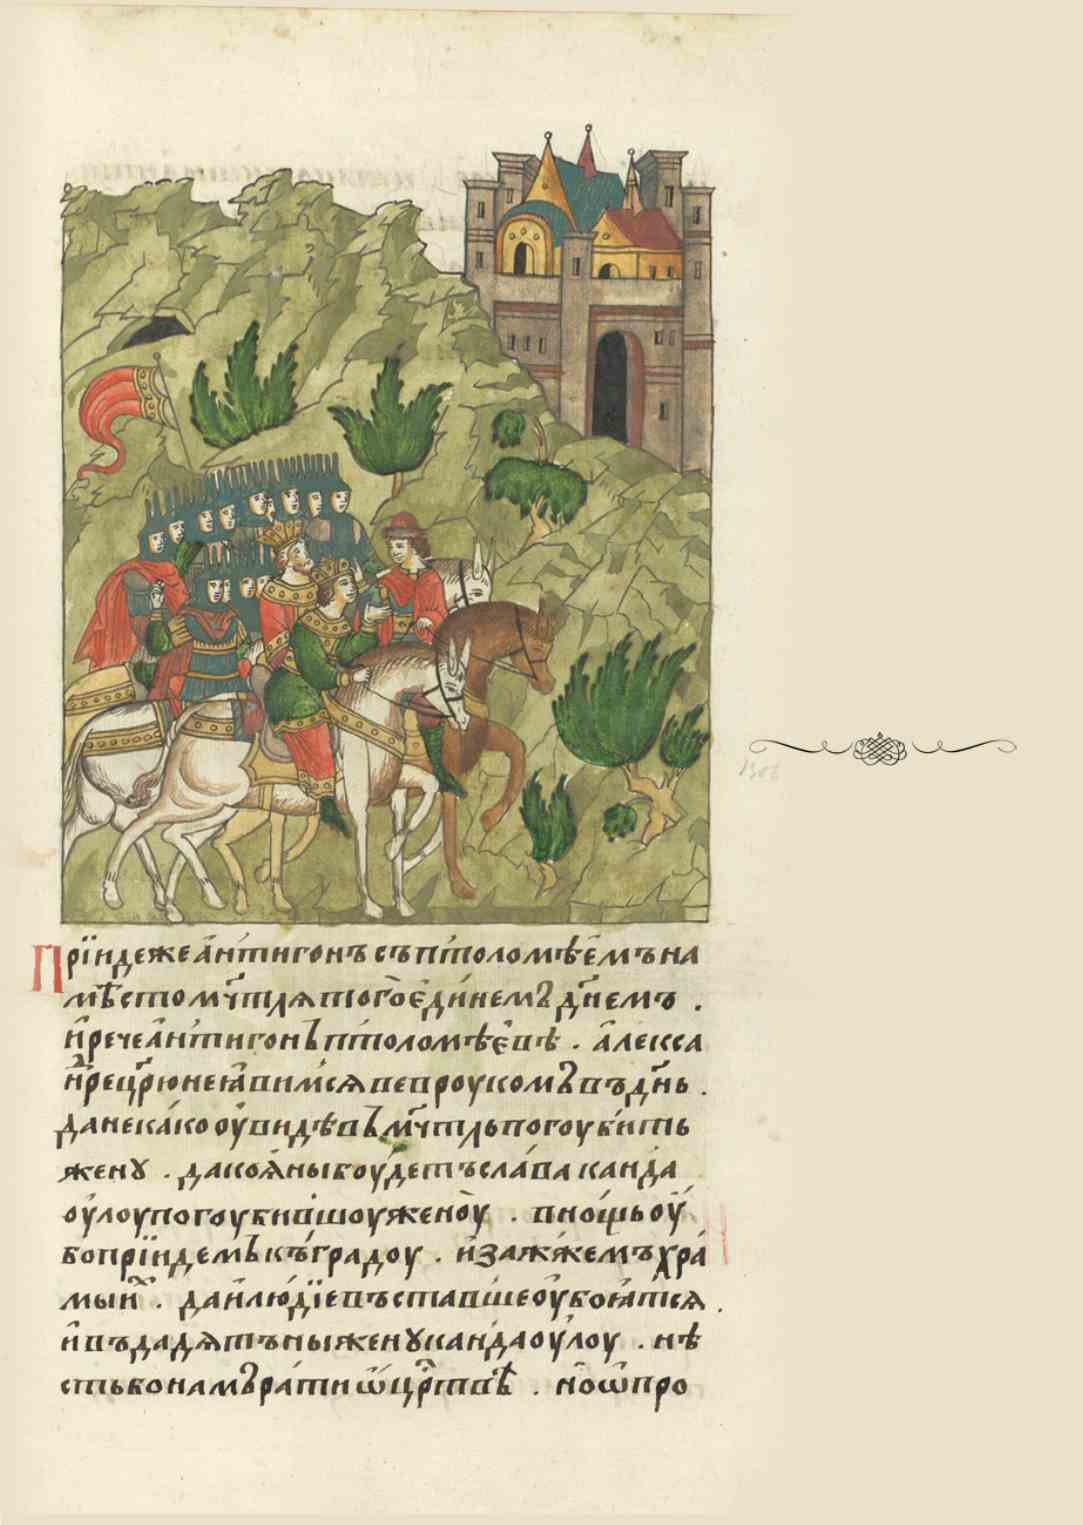 Прїидеже а҆нтигонъ съптоломѣе҆мъна
мѣстомч҃тлятюгоє҆ди́нем̾дн҃емъ .
и҆речеа҆нтигонъптоломѣє҆вѣ . а҆леѯса
дац҃рюнеꙗ҆вимсявевроукомꙋвъдн҃ь .
данекакооу҆видѣвъмч҃тльпогоуби́ть
женꙋ . дакоꙗ҆ныбоу́детъсла́ва канда
оу́лоупогоуби́вшоуженоу҆ . внощьоу҆
бопрїи́демъкъгра́доу . и҆заж̾жемъхра́
мыи҆х . даи҆лю́дїевъставшеоу҆боꙗ́тся
и҆въдадя́тъныженꙋкандаоу́лоу . нѣ
стьбонамъра́тиѡ҆ц҃рт̾вѣ . но҆ѡпро